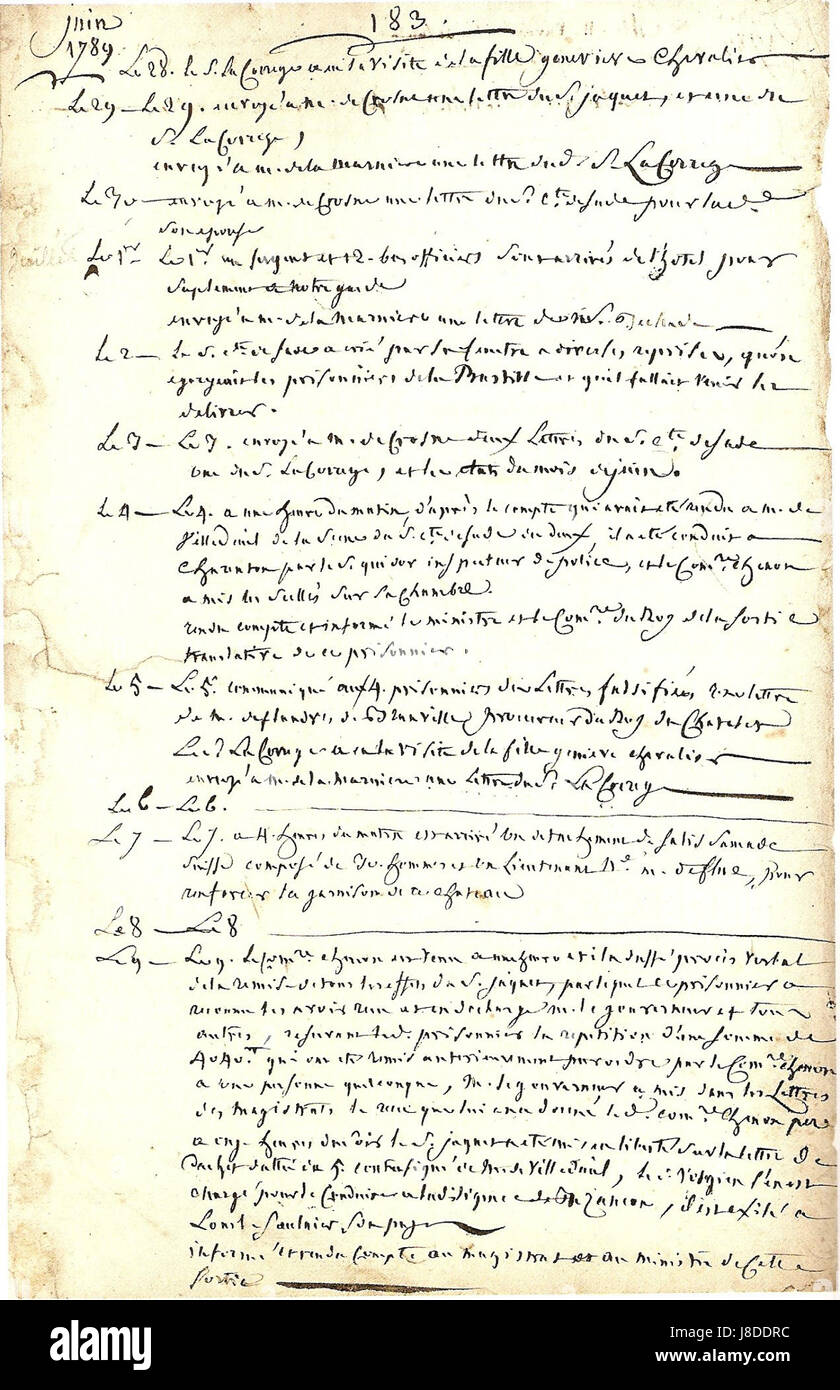 juin
1789
183.
Le 28. le S. La Correge a eu la visite de la fille genevieve Chevalier
Le 29 — Le 29. envoyé a m. de Crosne une lettre du S. jaquet, et une du
S. La Correge,
envoyé a m. de la marniere une lettre dud. S. La Correge
Le 30 — envoyé a m. de Crosne une lettre du S. Cte. desade pour lad.
son epouse
juillet
Le 1er Le 1er un sergent et 12. bas officiers sont arrivés de l'hotel pour
suplement a notre garde
envoyé a m. de la marniere une lettre de
Le 2 — Le S. Cte. de sade a crié par sa fenetre a diverses reprises, qu'on
egorgeait les prisonniers de la Bastille et qu'il fallait venir les
delivrer.
Le 3 — Le 3. envoyé a m. de Crosne deux Lettres du S. Cte. de sade
une du S. La Correge, et les etats du mois de juin.
Le 4 — Le 4. a une heure du matin, d'après le compte qui avait eté rendu a m. de
Villeduil de la scene du S. Cte. de sade du deux, il a eté conduit a
Charanton par le S. quidor inspecteur de police, et le Comre. chenon
a mis les scellés sur sa chambre.
rendu compte et informé le ministre et le Comre. du Roy de la sortie
translative de ce prisonnier.
Le 5 — Le 5. communiqué aux 4. prisonniers des Lettres falsifiées une lettre
de m. deflandres de Brunville procureur du Roy du Chatelet
Le S. La Correge a eu la visite de la fille genevieve chevalier
envoyé a m. de la marniere une Lettre du S. La Correge
Le 6 — Le 6.
Le 7 — Le 7. a 4. heures du matin est arrivé un detachement de salis samade
suisse composé de 30. hommes et un Lieutenant Né. m. deflue, pour
renforcer la garnison de ce chateau
Le 8 — Le 8
Le 9 — Le 9. le Comre. chenon est venu a une heure et il a dressé procès verbal
de la remise de tous les effets du S. jaquet, par lequel ce prisonnier a
reconnu les avoir reçu et en decharge m. le gouverneur et tous
autres, reservant led. prisonnier la repetition d'une somme de
4040tt qui ont eté remis anterieurement par ordre par le Comre. chenon
a une personne quelconque, M. le gouverneur a mis dans les Lettres
des magistrats le reçu que lui en a donné le d. comre. Chenon pere
a onze heures du soir le S. jaquet a eté mis en liberté sur la lettre de
Cachet dattée du 5. contresigné de M. de Villeduil, le S. s'est
chargé pour le conduire a de Bezancon, il est exilé a
Lons le Saulnier son pays
informé et rendu Compte au magistrat et au ministre de Cette
sortie
alamy
Image ID: J8DDRC
www.alamy.com